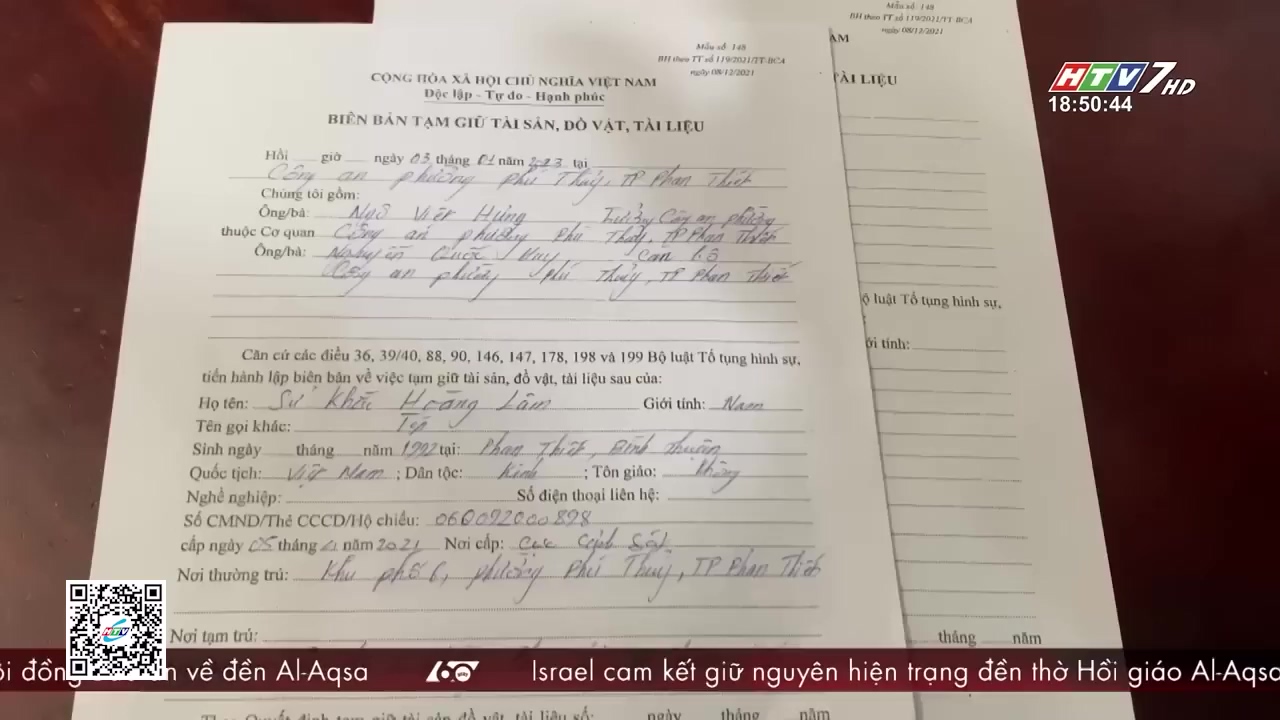 Mẫu số: 148
BH theo TT số 119/2021/TT-BCA
ngày 08/12/2021
CỘNG HÒA XÃ HỘI CHỦ NGHĨA VIỆT NAM
Độc lập - Tự do - Hạnh phúc
BIÊN BẢN TẠM GIỮ TÀI SẢN, ĐỒ VẬT, TÀI LIỆU
Hồi giờ ngày 03 tháng 01 năm 2023 tại
Công an phường Phú Thủy, TP Phan Thiết
Chúng tôi gồm:
Ông/bà: Ngô Việt Hùng, Trưởng Công an phường
thuộc Cơ quan Công an phường Phú Thủy, TP Phan Thiết
Ông/bà: Nguyễn Quốc Huy, Cán bộ
Công an phường Phú Thủy, TP Phan Thiết
Căn cứ các điều 36, 39/40, 88, 90, 146, 147, 178, 198 và 199 Bộ luật Tố tụng hình sự,
tiến hành lập biên bản về việc tạm giữ tài sản, đồ vật, tài liệu sau của:
Họ tên: Sử Khắc Hoàng Lâm Giới tính: Nam
Tên gọi khác: Tép
Sinh ngày tháng năm 1992 tại: Phan Thiết, Bình Thuận
Quốc tịch: Việt Nam; Dân tộc: Kinh; Tôn giáo: Không
Nghề nghiệp: Số điện thoại liên hệ:
Số CMND/Thẻ CCCD/Hộ chiếu: 060092000898
cấp ngày 05 tháng năm 2021 Nơi cấp: Cục Cảnh Sát
Nơi thường trú: Khu phố 6, phường Phú Thủy, TP Phan Thiết
Nơi tạm trú:
tạm giữ tài sản đồ vật, tài liệu số: ngày tháng năm
Mẫu số: 148
BH theo TT số 119/2021/TT-BCA
ngày 08/12/2021
TÀI LIỆU
luật Tố tụng hình sự,
tính:
tháng năm
HTV7 HD
18:50:44
HTV
về đền Al-Aqsa
60 giây
Israel cam kết giữ nguyên hiện trạng đền thờ Hồi giáo Al-Aqsa